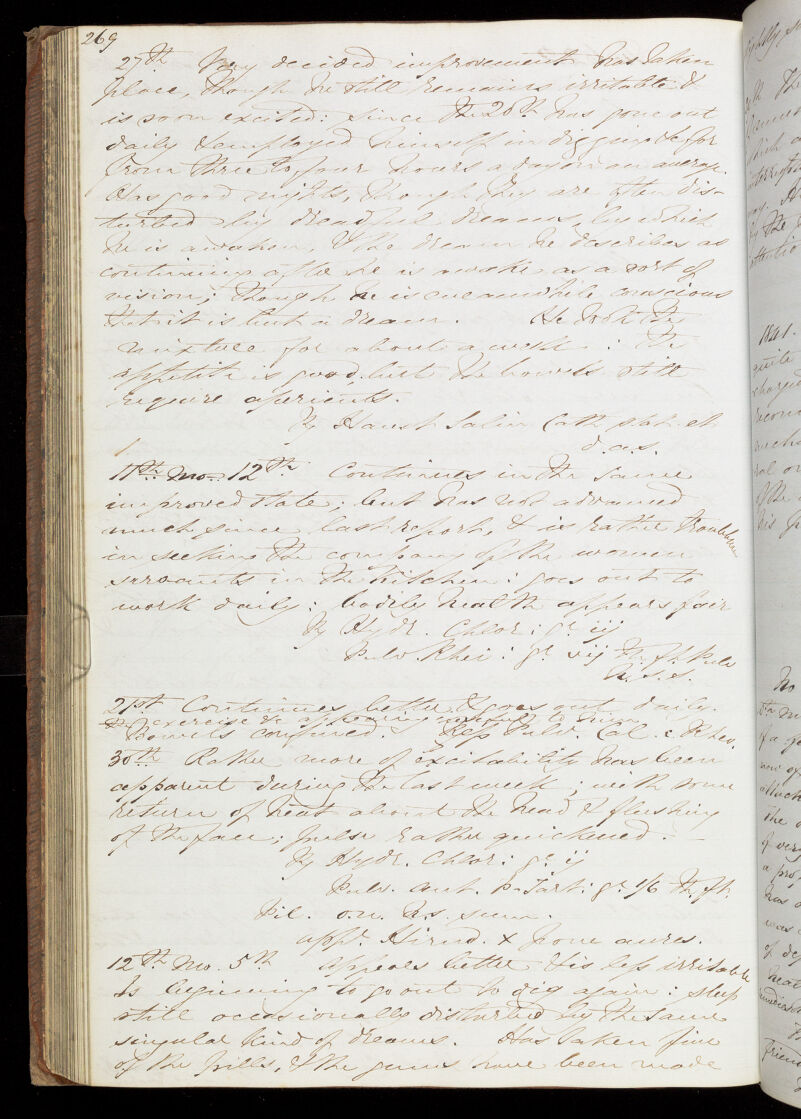 269
27th Very decided improvement has taken
place, though he still remains irritable &
is soon excited: since the 20th has gone out
daily & employed himself in digging &c for
from three to four hours a day on an average.
Has good nights, though they are often dis-
turbed by dreadful dreams, by which
he is awaken, & the dream he describes as
continuing after he is awake, as a sort of
vision; though he is meanwhile conscious
that it is but a dream. He took the
mixture for about a week: the
appetite is good, but the bowels still
require aperients.
Rx Haust. Salin. Cath. p.r.n. et
d.a.s.
11th Mo. 12th Continues in the same
improved state; but has not advanced
much since last report, & is rather troublesome
in seeking the company of the women
servants in the kitchen: goes out to
work daily: bodily health appears fair
Rx Hydr. Chlor: gr iij
Pulv. Rhei: gr vij M. ft. Pulv
h.s.s.
21st Continues better & goes out daily.
exercise &c appearing useful to him
Bowels confined. Rep. Pulv. Cal. c Rheo.
30th Rather more of excitability has been
apparent during the last week; with some
return of heat about the head & flushing
of the face; pulse rather quickened.
Rx Hydr. Chlor: gr ij
Pulv. Ant. P. Tart: gr 1/6 M. ft.
Pil. o.n. h.s. sum.
appr. Hirud. x pone aures.
12th Mo. 5th Appears better & is less irritable
Is beginning to go out to dig again: sleep
still occasionally disturbed by the same
singular kind of dreams. Has taken five
of the pills, & the gums have been made